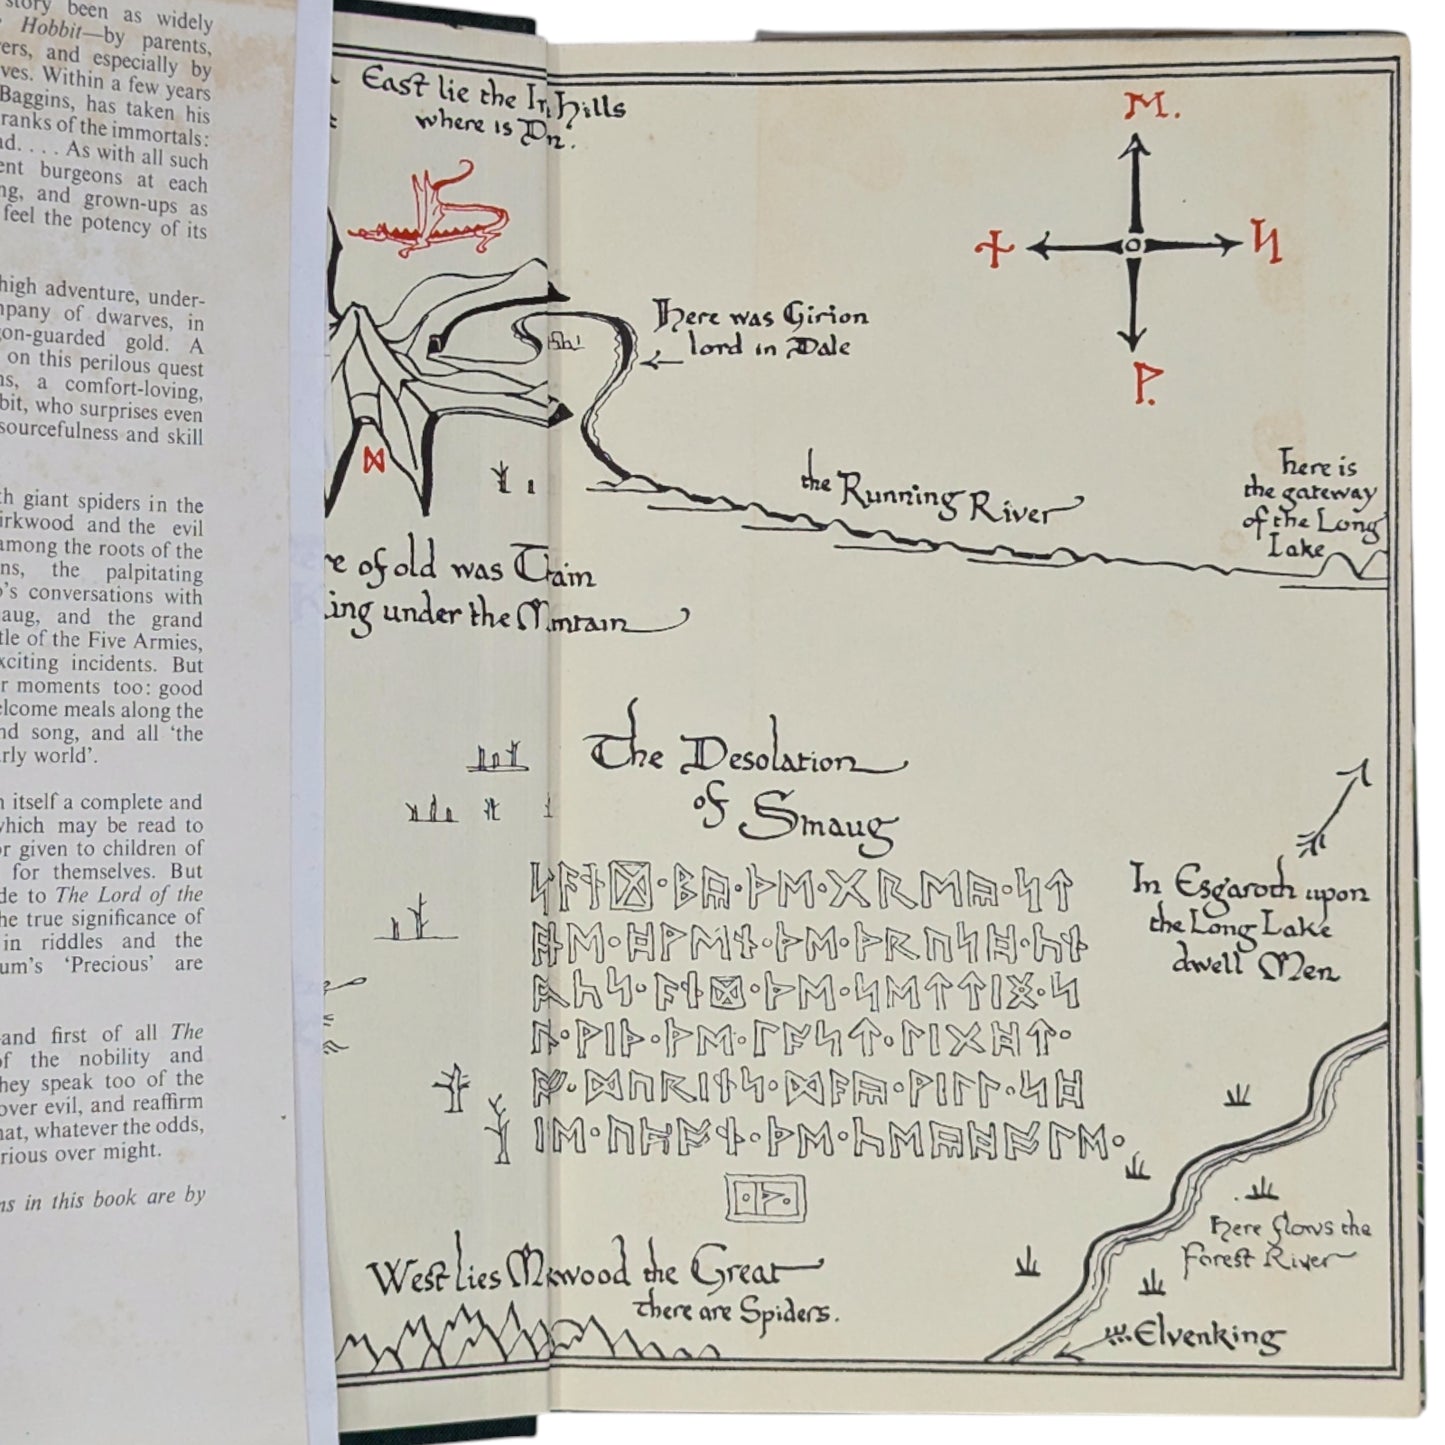 story been as widely
Hobbit—by parents,
and especially by
Within a few years
Baggins, has taken his
ranks of the immortals:
. . . . As with all such
burgeons at each
and grown-ups as
feel the potency of its
high adventure, under-
of dwarves, in
gold. A
on this perilous quest
a comfort-loving,
who surprises even
and skill
giant spiders in the
and the evil
among the roots of the
the palpitating
conversations with
and the grand
of the Five Armies,
incidents. But
moments too: good
meals along the
song, and all ‘the
world’.
itself a complete and
which may be read to
or given to children of
for themselves. But
to The Lord of the
the true significance of
in riddles and the
‘Precious’ are
and first of all The
of the nobility and
They speak too of the
over evil, and reaffirm
whatever the odds,
over might.
in this book are by
East lie the Hills
where is
ᛖ.
ᚾ
ᛋ
ᚹ.
Here was Girion
lord in Dale
ᛞ
the Running River
here is
the gateway
of the Long
Lake
of old was
under the
The Desolation
of Smaug
ᛒᚣ·ᚦᛖ·ᚷᚱᛖᚣ·ᛋᛏ
ᚻᚹᛖᚾ·ᚦᛖ·ᚦᚱᚢᛋᚻ·ᚳᚾ
ᚩᚳᛋ·ᚪᚾᛞ·ᚦᛖ·ᛋᛖᛏᛏᛁᛝ·ᛋ
ᚹᛁᚦ·ᚦᛖ·ᛚᚪᛋᛏ·ᛚᛁᚷᚻᛏ·
ᚩᚠ·ᛞᚢᚱᛁᚾᛋ·ᛞᚪᚣ·ᚹᛁᛚᛚ·ᛋᚻ
ᚢᛈᚩᚾ·ᚦᛖ·ᚳᛖᚣᚻᚩᛚᛖ·
In Esgaroth upon
the Long Lake
dwell Men
West lies the Great
there are Spiders.
Here flows the
Forest River
Elvenking